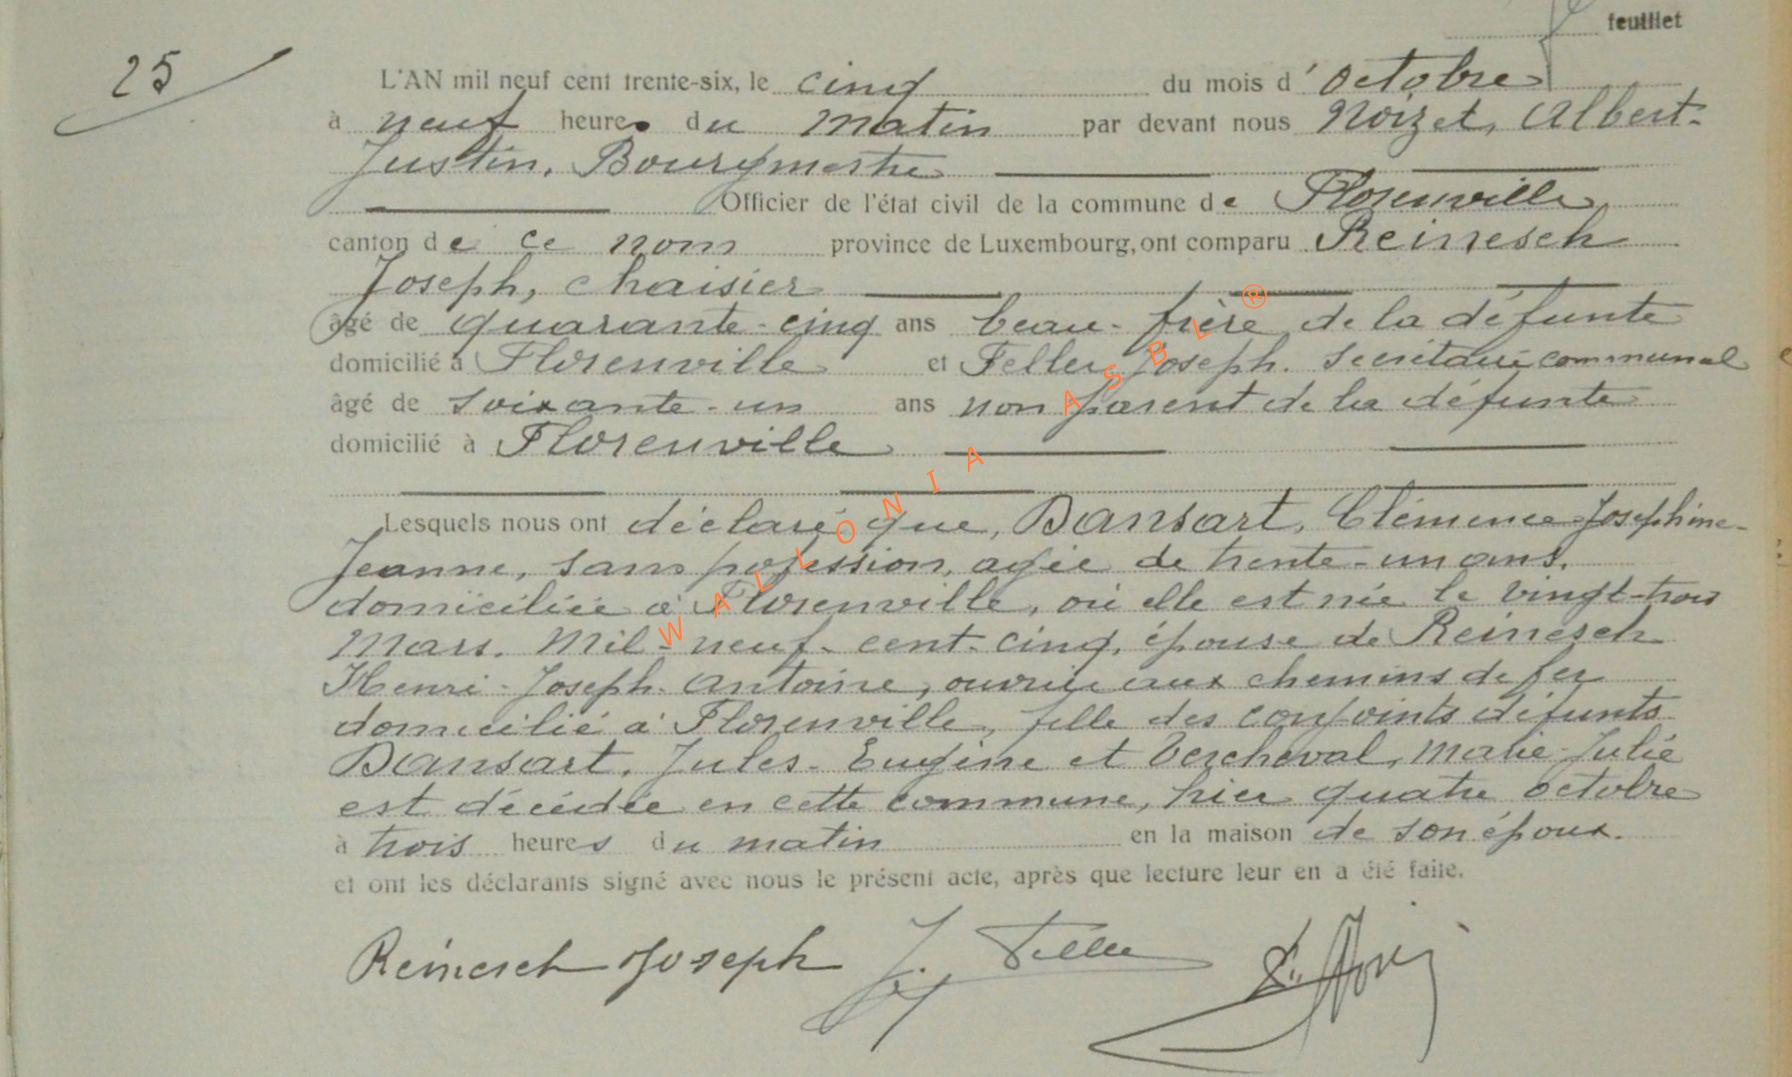 feuillet
25
L'AN mil neuf cent trente-six, le cinq du mois d'octobre
à neuf heures du matin par devant nous Noizet, Albert-
Justin, Bourgmestre
Officier de l'état civil de la commune de Florenville
canton de ce nom province de Luxembourg, ont comparu Reinesch
Joseph, chaisier
âgé de quarante-cinq ans beau-frère de la défunte
domicilié à Florenville et Feller Joseph. Secrétaire communal
âgé de soixante-un ans non parent de la défunte
domicilié à Florenville
Lesquels nous ont déclaré que, Dansart, Clémence-Josephine-
Jeanne, sans profession, agée de trente-un ans,
domiciliée à Florenville, où elle est née le vingt-trois
Mars. Mil-neuf-cent-cinq, épouse de Reinesch
Henri-Joseph-Antoine, ouvrier aux chemins de fer
domicilié à Florenville, fille des conjoints défunts
Dansart, Jules-Eugène et Vercheval, Marie-Julie
est décédée en cette commune, hier quatre octobre
à trois heures du matin en la maison de son époux.
et ont les déclarants signé avec nous le présent acte, après que lecture leur en a été faite.
Reinesch Joseph J. Feller
WALLONIA ASBL ®